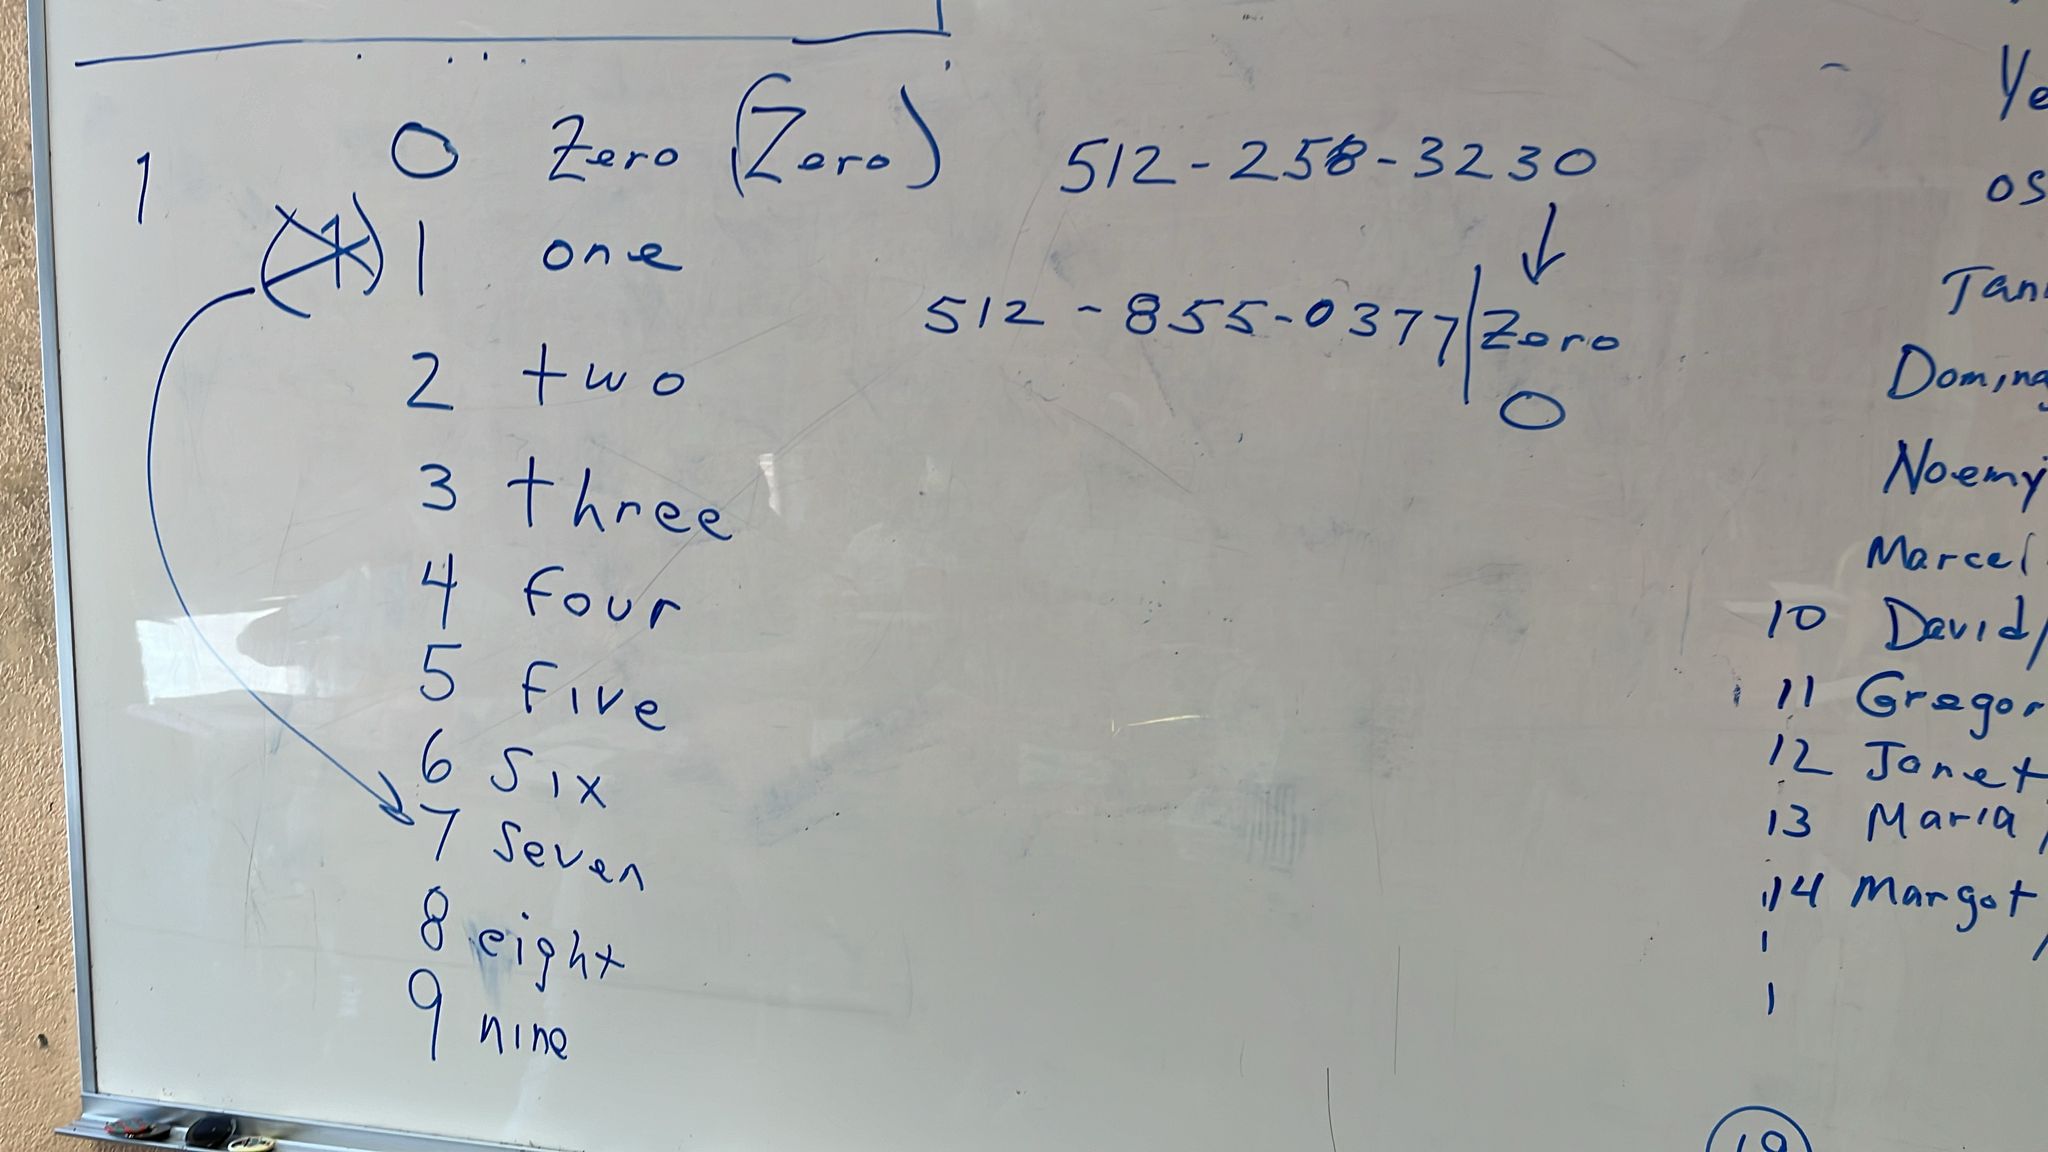 0 Zero (Zero)
1
(1) 1 one
2 two
3 three
4 four
5 five
6 six
7 seven
8 eight
9 nine
512-258-3230
512-855-0377 | Zero
0
Ye
os
Tan
Doming
Noemy
Marcel
10 David/
11 Gregor
12 Janet
13 Maria/
14 Margot/
1
1
19